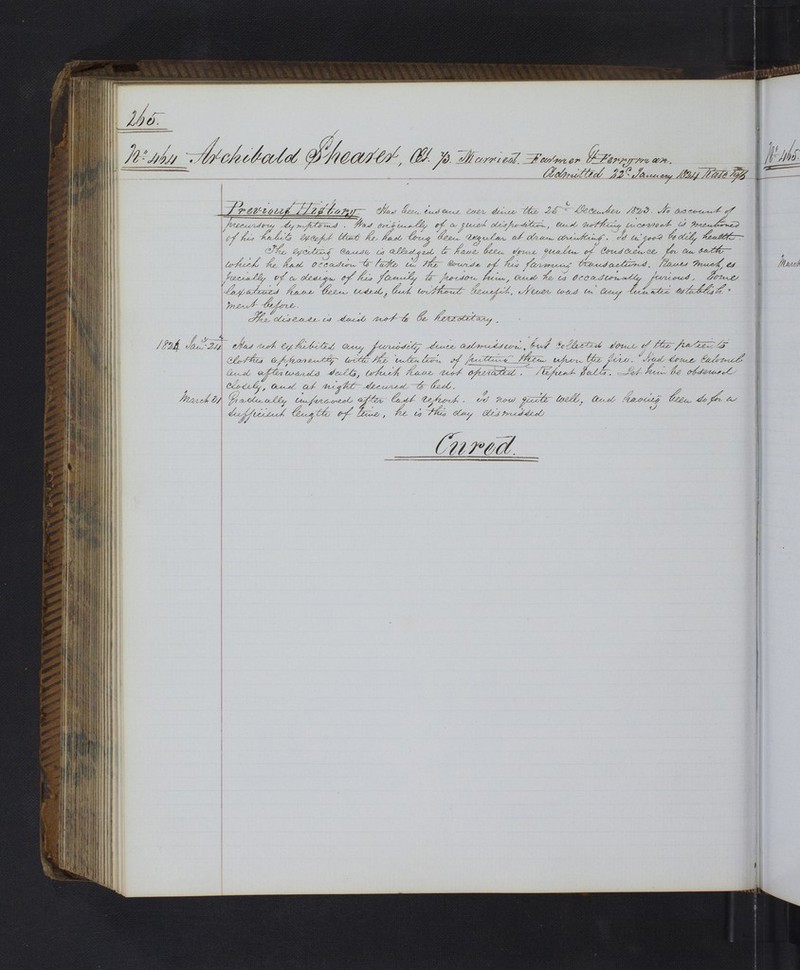 265.
No. 464 Archibald Shearer, Æt. 73. Married. Farmer & Ferryman.
Admitted 22d January 1824 Rate
Previous History Has been insane ever since the 25th December 1823. No account of
precursory symptoms. Was originally of a quiet disposition, and nothing incorrect is mentioned
of his habits except that he had long been regular at dram drinking. Is in good bodily health
The exciting cause is alledged to have been some qualm of conscience for an oath
which he had occasion to take in the course of his farming transactions. Raves much, es
pecially of a design of his family to poison him, and he is occasionally furious. Some
laxatives have been used, but without benefit. Never was in any lunatic establish-
ment before.
The disease is said not to be hereditary.
1824 Jany. 24 Has not exhibited any furiosity since admission, but collected some of the patients
clothes apparently with the intention of putting them upon the fire. Had some calomel
and afterwards salts, which have not operated. Repeat Salts. Let him be observed
closely, and at night secured to bed.
March 21 Gradually improved after last report. Is now quite well, and having been so for a
sufficient length of time, he is this day dismissed
Cured.
No. 465
March